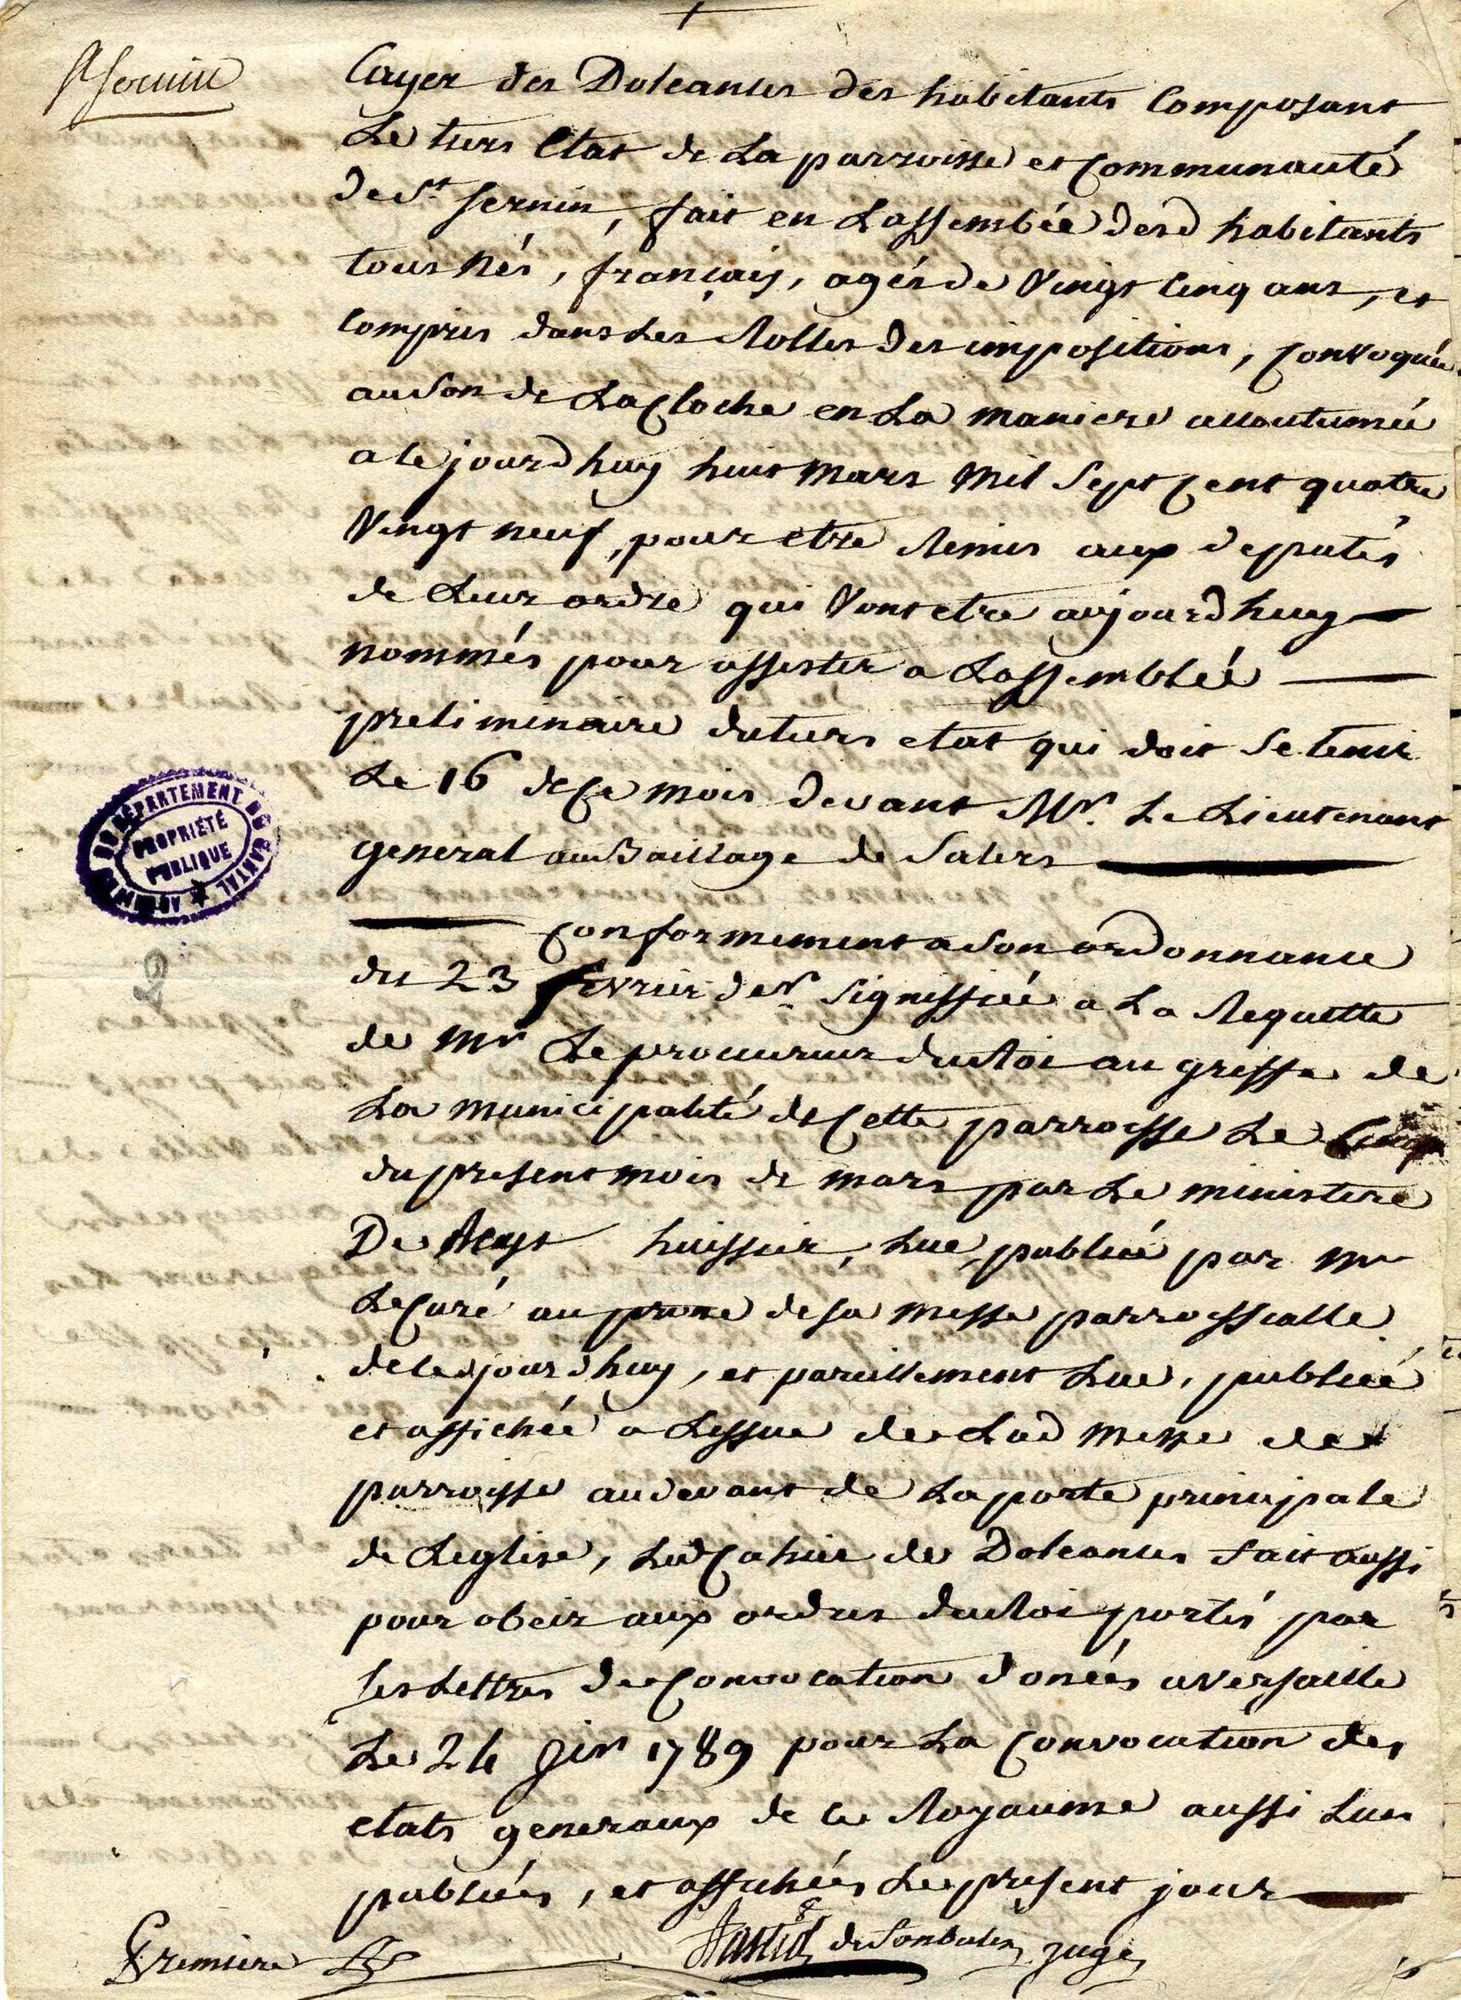 St Sernin
Cayer des Doleances des habitants Composant
Le tiers Etat de La parroisse et Communauté
de St. Sernin, fait en Lassembée desd habitants
tous Nés, français, agés de Vingt Cinq ans, et
Compris dans Les Rolles des impositions, Convoqués
au Son de La Cloche en La maniere accoutumée
a ce jourdhuy huit mars Mil Sept Cent quatre
Vingt neuf, pour etre Remis aux deputés
de Leur ordre qui Vont etre aujourdhuy
nommés pour assister a Lassemblée
preliminaire du tiers etat qui doit Se tenir
Le 16 de Ce mois devant Mr. Le Lieutenant
general au Baillage de Salers
Conformement a Son ordonnance
du 23 fevrier der. Signiffiée a La Requette
de Mr Le procureur du Roi au greffe de
La municipalité de Cette parroisse Le Cinq
du present mois de mars par Le ministere
De huissier, Lue, publiée par Mr
Le Curé au prone de Sa Messe parroissialle
de Ce jourdhuy, et pareillement Lue, publiée
et affichée a Lissue de Lad Messe de
parroisse au devant de La porte principale
de Leglise, Led Cahier de Doleances fait aussi
pour obeir aux ordres du Roi portés par
Ses Lettres de Convocation donées a Versaille
Le 24 jer 1789 pour La Convocation des
etats generaux de Ce Royaume aussi Lues
publiées, et affichées Le present jour
Premiere juge
ARCHIVES DU DÉPARTEMENT DU CANTAL
PROPRIÉTÉ
PUBLIQUE